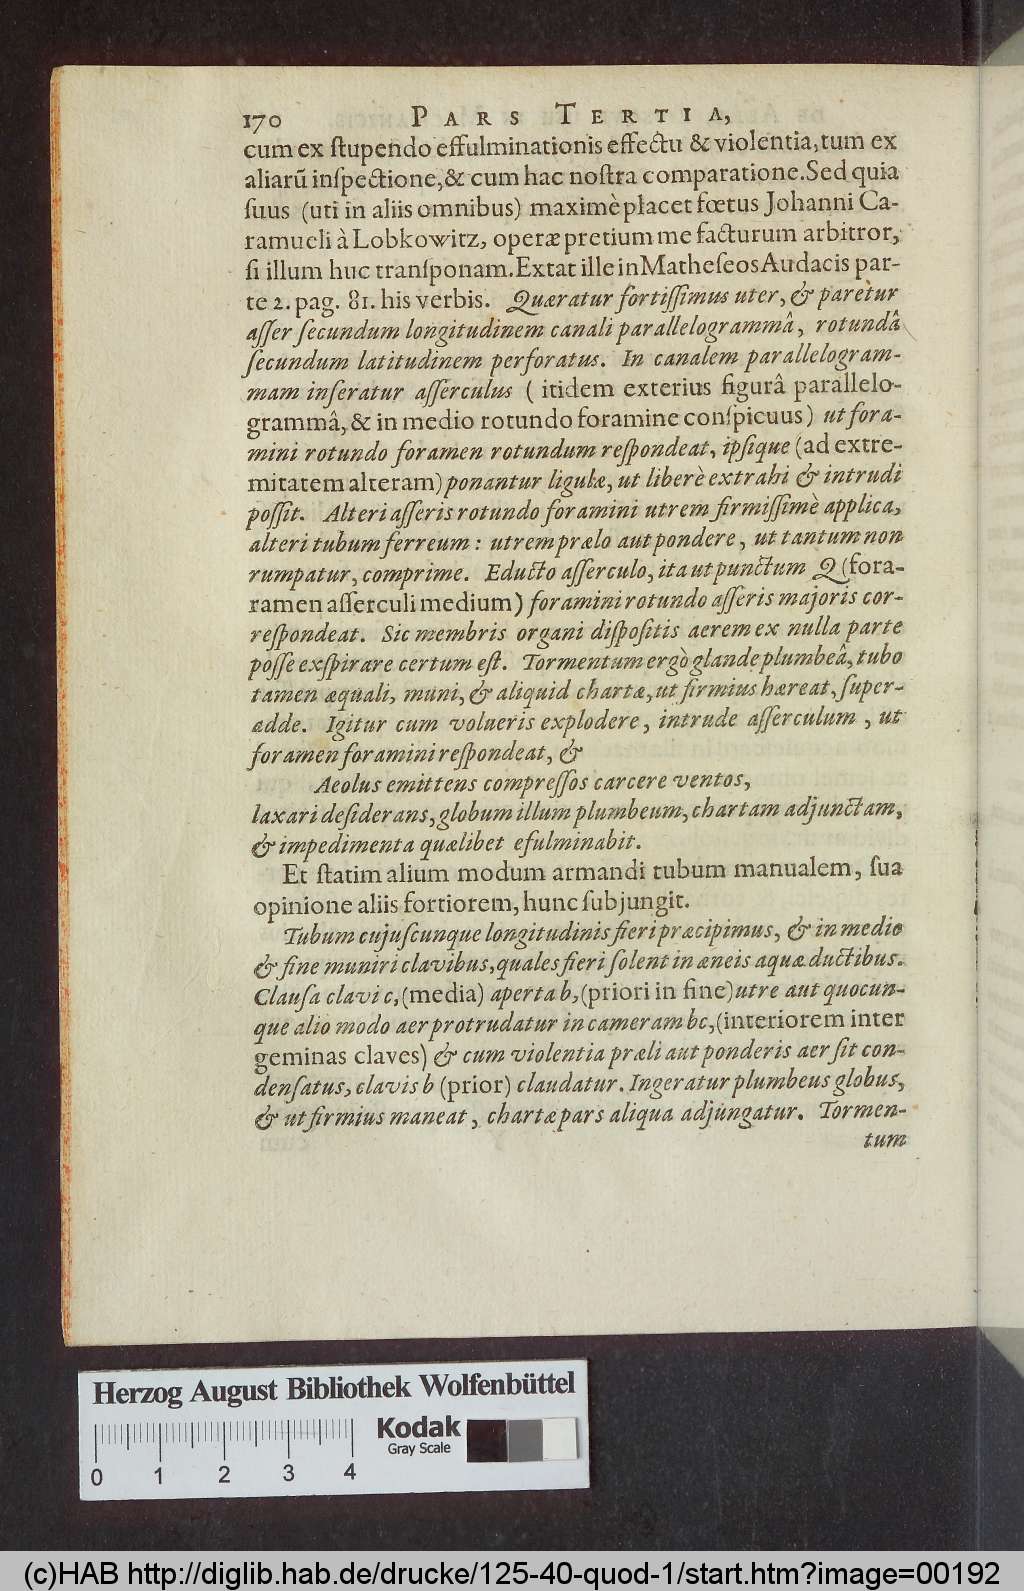 170 PARS TERTIA,
cum ex ſtupendo effulminationis effectu & violentia, tum ex
aliarũ inſpectione, & cum hac noſtra comparatione. Sed quia
ſuus (uti in aliis omnibus) maximè placet fœtus Johanni Ca-
ramueli à Lobkowitz, operæ pretium me facturum arbitror,
ſi illum huc tranſponam. Extat ille in Matheſeos Audacis par-
te 2. pag. 81. his verbis. Quæratur fortiſſimus uter, & paretur
aſſer ſecundum longitudinem canali parallelogrammâ, rotundâ
ſecundum latitudinem perforatus. In canalem parallelogram-
mam inſeratur aſſerculus ( itidem exterius figurâ parallelo-
grammâ, & in medio rotundo foramine conſpicuus) ut fora-
mini rotundo foramen rotundum reſpondeat, ipſique (ad extre-
mitatem alteram) ponantur ligulæ, ut liberè extrahi & intrudi
poſſit. Alteri aſſeris rotundo foramini utrem firmiſſimè applica,
alteri tubum ferreum : utrem prælo aut pondere, ut tantum non
rumpatur, comprime. Educto aſſerculo, ita ut punctum Q (fora-
ramen aſſerculi medium) foramini rotundo aſſeris majoris cor-
reſpondeat. Sic membris organi diſpoſitis aerem ex nulla parte
poſſe exſpirare certum eſt. Tormentum ergò glande plumbeâ, tubo
tamen æquali, muni, & aliquid chartæ, ut firmius hæreat, ſuper-
adde. Igitur cum volueris explodere, intrude aſſerculum, ut
foramen foramini reſpondeat, &
Aeolus emittens compreſſos carcere ventos,
laxari deſiderans, globum illum plumbeum, chartam adjunctam,
& impedimenta quælibet efulminabit.
Et ſtatim alium modum armandi tubum manualem, ſua
opinione aliis fortiorem, hunc ſubjungit.
Tubum cujuſcunque longitudinis fieri præcipimus, & in medio
& fine muniri clavibus, quales fieri ſolent in æneis aquæ ductibus.
Clauſa clavi c, (media) aperta b, (priori in fine) utre aut quocun-
que alio modo aer protrudatur in cameram bc, (interiorem inter
geminas claves) & cum violentia præli aut ponderis aer ſit con-
denſatus, clavis b (prior) claudatur. Ingeratur plumbeus globus,
& ut firmius maneat, chartæ pars aliqua adjungatur. Tormen-
tum
Herzog August Bibliothek Wolfenbüttel
Kodak
Gray Scale
0 1 2 3 4
(c)HAB http://diglib.hab.de/drucke/125-40-quod-1/start.htm?image=00192